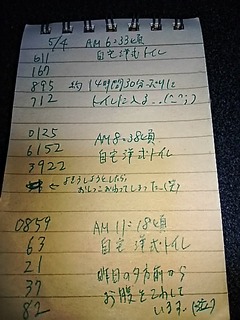 5/4 AM 6:33頃
611 自宅洋式トイレ
167
895 約14時間30分ぶりに
712 トイレに入る…(^^;)
0125 AM 8:38頃
6152 自宅洋式トイレ
3922
←ようしようとしたら、
おしっこおわってしまった(笑)
0859 AM 11:18頃
63 自宅洋式トイレ
21
37 昨日の夕方前から
82 お腹をこわして
います(泣)